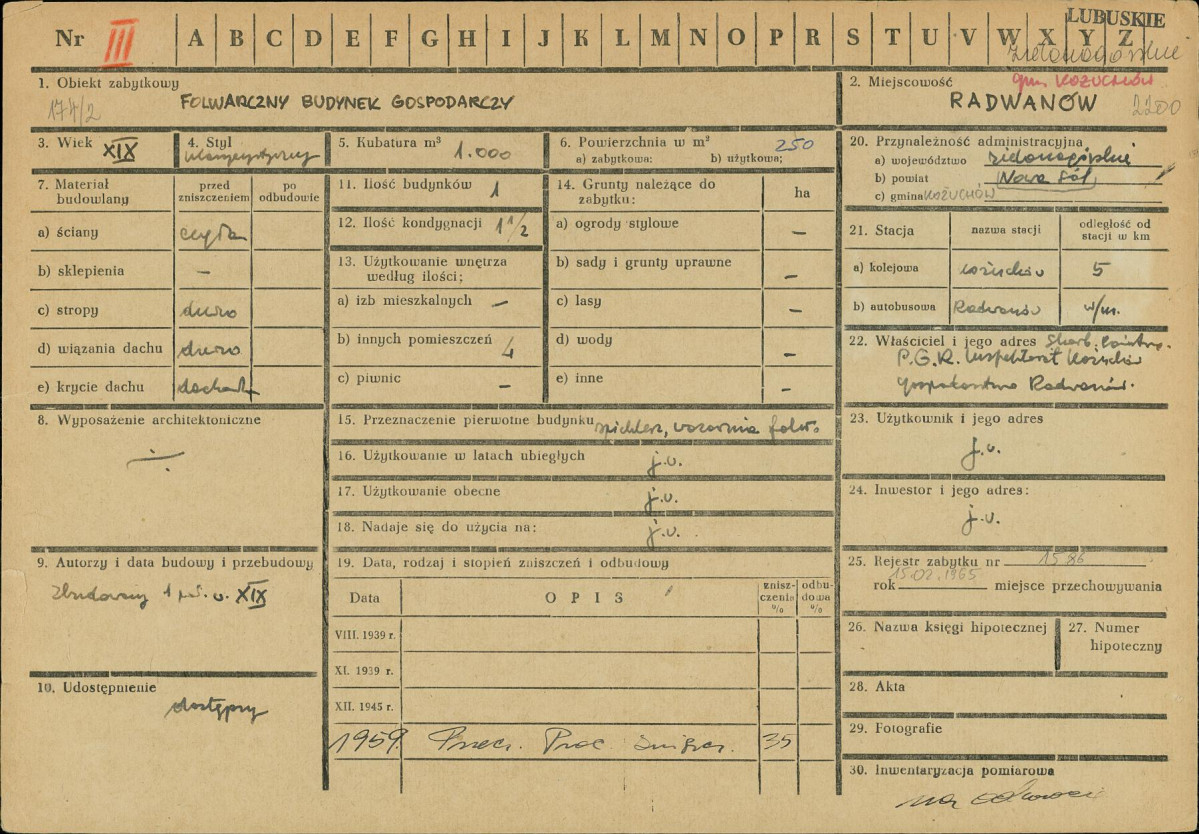 LUBUSKIE
Nr III A B C D E F G H I J K L M N O P R S T U V W X Y Z
zielonogórskie
1. Obiekt zabytkowy
174/2
FOLWARCZNY BUDYNEK GOSPODARCZY
2. Miejscowość gm. KOŻUCHÓW
RADWANÓW 2200
3. Wiek XIX
4. Styl klasycystyczny
5. Kubatura m³ 1.000
6. Powierzchnia w m² 250
a) zabytkowa: b) użytkowa;
7. Materiał budowlany
przed zniszczeniem
po odbudowie
a) ściany cegła
b) sklepienia –
c) stropy drewno
d) wiązania dachu drewno
e) krycie dachu dachówka
8. Wyposażenie architektoniczne
9. Autorzy i data budowy i przebudowy
Zbudowany 1 poł. w. XIX
10. Udostępnienie
dostępny
11. Ilość budynków 1
12. Ilość kondygnacji 1 1/2
13. Użytkowanie wnętrza
według ilości;
a) izb mieszkalnych –
b) innych pomieszczeń 4
c) piwnic –
14. Grunty należące do
zabytku: ha
a) ogrody stylowe –
b) sady i grunty uprawne –
c) lasy –
d) wody –
e) inne –
15. Przeznaczenie pierwotne budynku spichlerz, wozownia folw.
16. Użytkowanie w latach ubiegłych j.w.
17. Użytkowanie obecne j.w.
18. Nadaje się do użycia na: j.w.
19. Data, rodzaj i stopień zniszczeń i odbudowy
Data OPIS znisz-czenia % odbu-dowa %
VIII. 1939 r.
XI. 1939 r.
XII. 1945 r.
1959. 35
20. Przynależność administracyjna
a) województwo zielonogórskie
b) powiat Nowa Sól
c) gmina KOŻUCHÓW
21. Stacja nazwa stacji odległość od stacji w km
a) kolejowa Kożuchów 5
b) autobusowa Radwanów w/m.
22. Właściciel i jego adres Skarb.
P.G.R. Inspektorat Kożuchów
Gospodarstwo Radwanów.
23. Użytkownik i jego adres
j.w.
24. Inwestor i jego adres:
j.w.
25. Rejestr zabytku nr 1586
15.02.1965
rok miejsce przechowywania
26. Nazwa księgi hipotecznej
27. Numer
hipoteczny
28. Akta
29. Fotografie
30. Inwentaryzacja pomiarowa